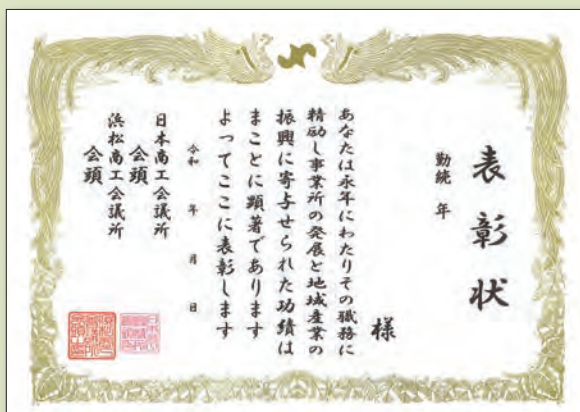 表彰状
勤続 年
様
あなたは永年にわたりその職務に
精励し事業所の発展と地域産業の
振興に寄与せられた功績は
まことに顕著であります
よってここに表彰します
令和 年 月 日
日本商工会議所
会頭
浜松商工会議所
会頭